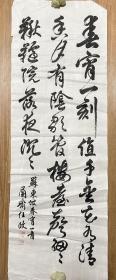 春宵一刻值千金花有清
香月有陰歌管樓臺聲細々
鞦韆院落夜沉々
蘇東坡春宵一首
任政